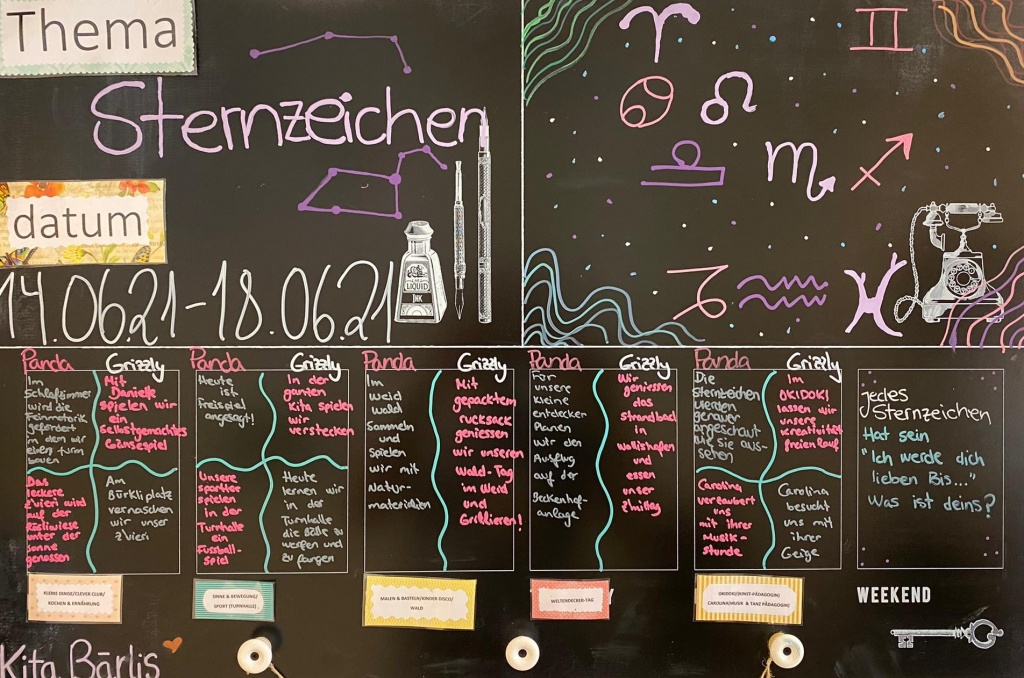 Thema
Sternzeichen
datum
14.0621-18.0621
LIQUID
INK
Panda
Grizzly
Im
Schlafzimmer
wird die
Feinmotorik
gefördert
in dem wir
einen turm
bauen
Mit
Danielle
spielen wir
ein
selbstgemachtes
Gänsespiel
Das
leckere
Zvieri wird
auf der
Röslíwiese
unter der
Sonne
genossen
Am
Bürkliplatz
vernaschen
wir unser
Zvieri
Panda
Grizzly
Heute
ist
Freispiel
angesagt!
In der
ganzen
Kita spielen
wir
verstecken
Unsere
sportler
spielen
in der
Turnhalle
ein
Fussball-
spiel
Heute
lernen wir
in der
Turnhalle
die Bälle zu
werfen und
zu fangen
Panda
Grizzly
Im
Weid
Wald
Sammeln
und
Spielen
wir mit
Natur-
materialien
Mit
gepacktem
rucksack
geniessen
wir unseren
Wald-Tag
im Weid
und
Grillieren!
Panda
Grizzly
Für
unsere
kleine
entdecker
Planen
wir den
Ausflug
auf der
Beckenhof-
anlage
Wir
geniessen
das
Strandbad
in
Wollishofen
und
essen
unser
z'mittag
Panda
Grizzly
Die
Sternzeichen
werden
genauer
angeschaut
wie sie aus-
sehen
Im
OKIDOKI
lassen wir
unsere
kreativität
freien lauf
Carolina
verzaubert
uns
mit ihrer
Musik-
stunde
Carolina
besucht
uns mit
ihrer
Geige
jedes
Sternzeichen
Hat sein
"Ich werde dich
lieben Bis..."
Was ist deins?
KLEINS DINGE/CLEVER CLUB/
KOCHEN & ERNÄHRUNG
SINNE & BEWEGUNG/
SPORT (TURNHALLE)
MALEN & BASTELN/KINDER DISCO/
WALD
WELTENDECKER-TAG
OKIDOKI(KUNST-PÄDAGOGIN)
CAROLINA(MUSIK & TANZ PÄDAGOGIN)
WEEKEND
Kita Bärlis